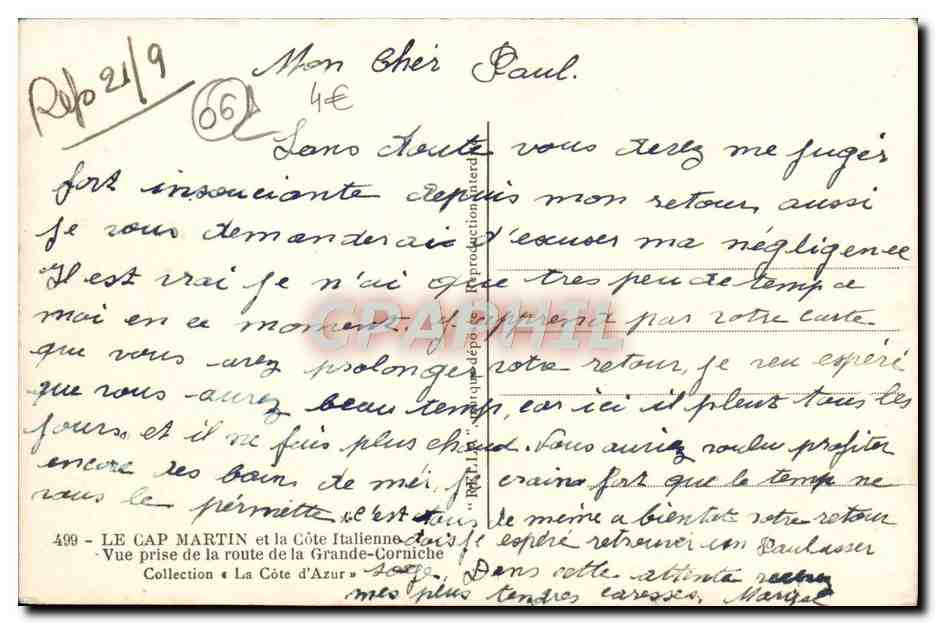 Rép 21/9
06
4€
Mon Cher Paul.
Sans doute vous devez me juger
fort insouciante depuis mon retour, aussi
je vous demanderai d'excuser ma négligence
Il est vrai je n'ai que tres peu de temp a
moi en ce moment. J'apprend par votre carte
que vous avez prolonger votre retour, je veu espéré
que vous aurez beau temp, car ici il pleut tous les
jours, et il ne fais plus chaud. Vous auriez voulu profiter
encore des bains de mér, je crains fort que le temp ne
vous le pérmette. c'est tous de meme a bientot votre retour
dois je espéré retrouver un Paul asser
sage. Dans cette attente recevez
mes plus tendres caresses.
499 - LE CAP MARTIN et la Côte Italienne
Vue prise de la route de la Grande-Corniche
Collection « La Côte d'Azur »
"RELLA" Reproduction interdite
CARAPHIL